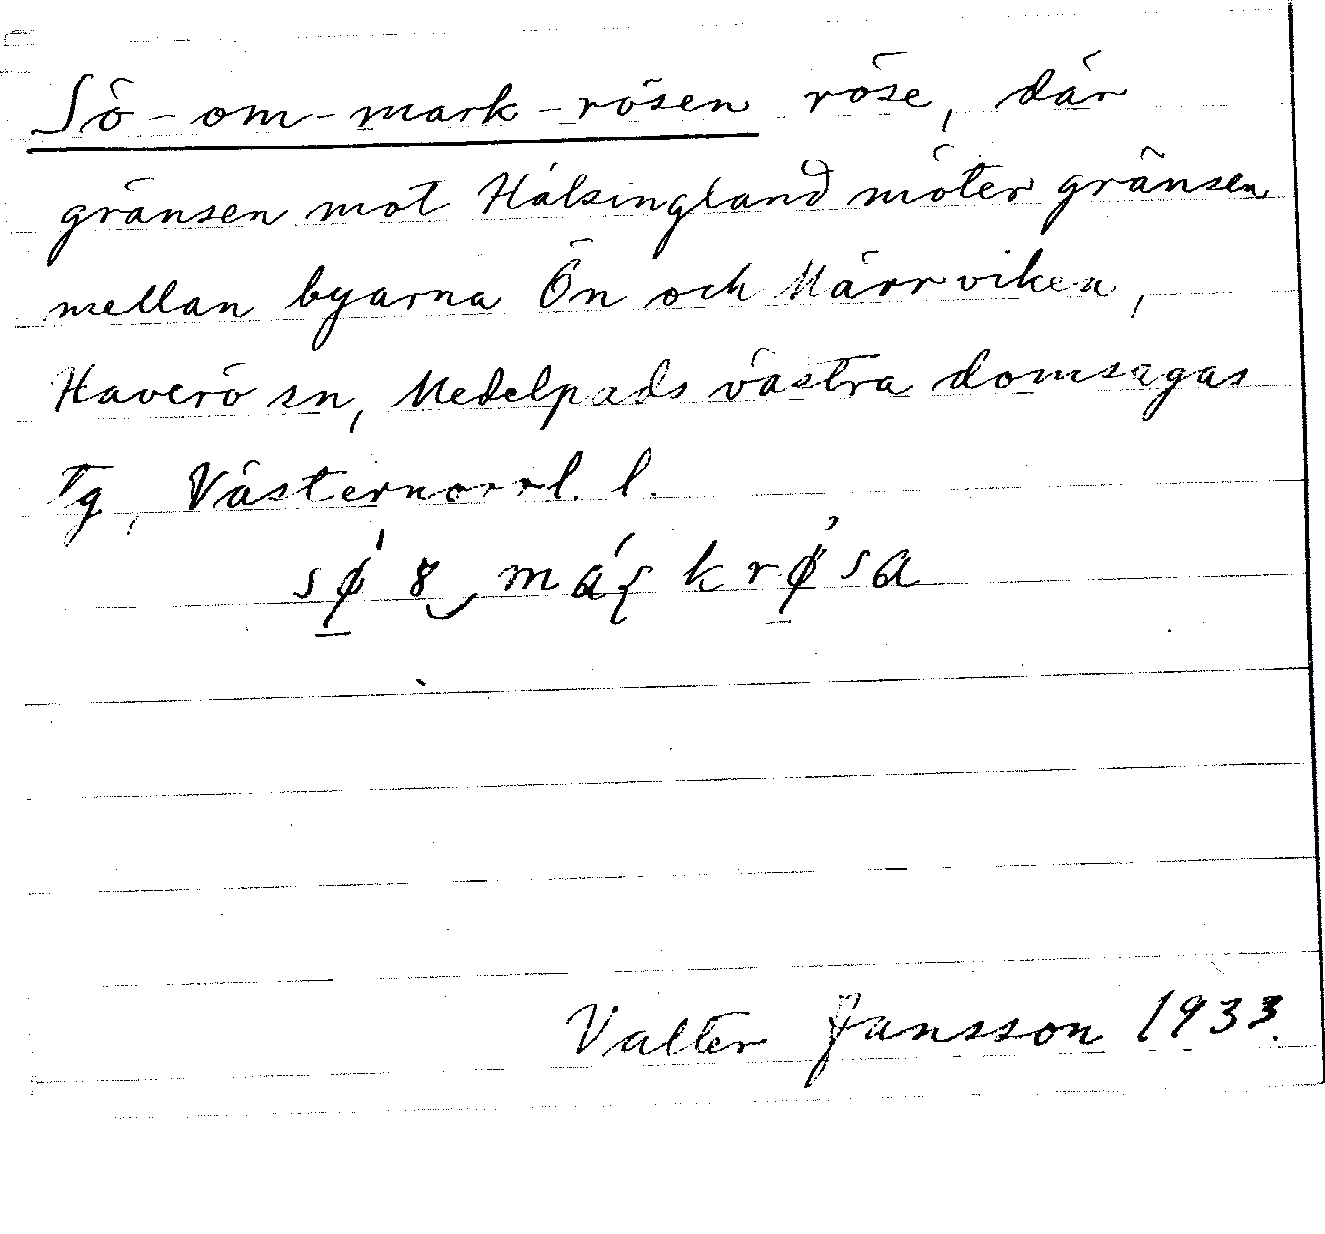 Sö-om-mark-rösen röse, där
gränsen mot Hälsingland möter gränsen
mellan byarna Ön och Märrviken,
Haverö sn, Medelpads västra domsagas
Tg, Västernorrl. l.
Valter Jansson 1933.